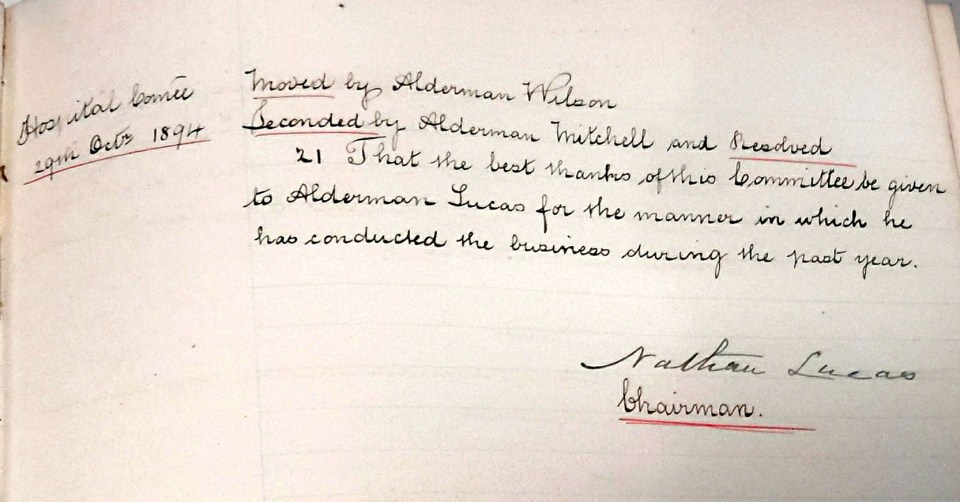 Hospital Comtee
29th Octr 1894
Moved by Alderman Wilson
Seconded by Alderman Mitchell and Resolved
21 That the best thanks of this Committee be given
to Alderman Lucas for the manner in which he
has conducted the business during the past year.
Nathan Lucas
Chairman.